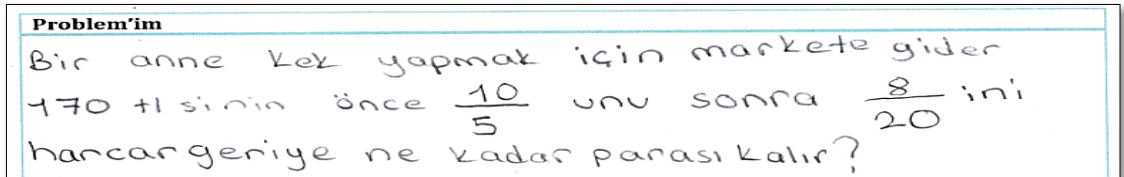 Problem'im
Bir anne kek yapmak için markete gider
170 tl sinin önce 10/5 unu sonra 8/20 ini
harcar geriye ne kadar parası kalır?